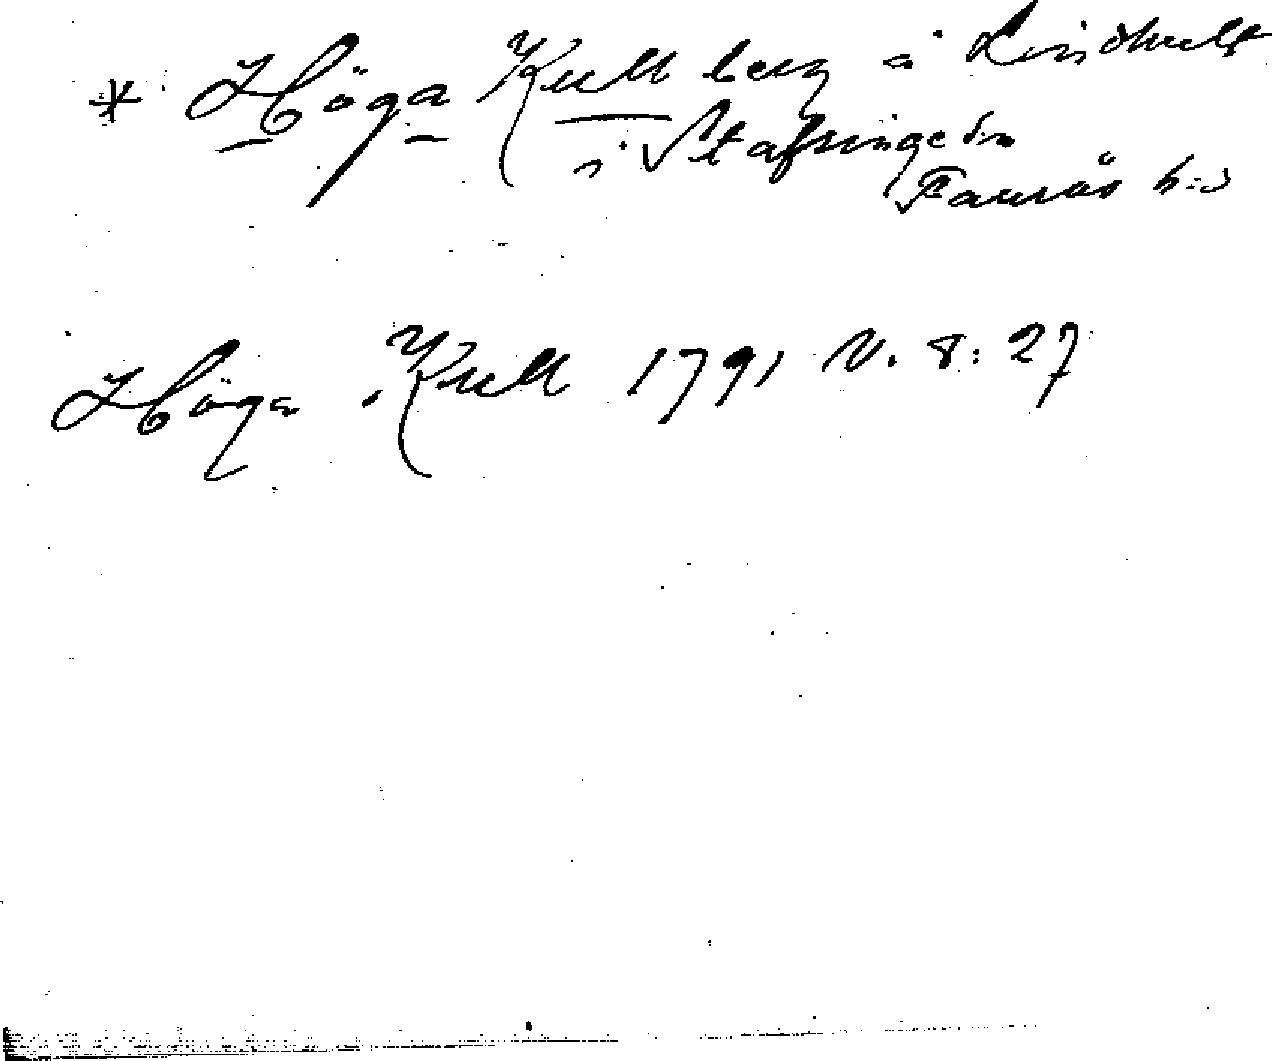 * Höga Kull berg å Lindhult
i Stafsinge sn
Faurås h:d
Höga Kull 1791 N. 8: 27